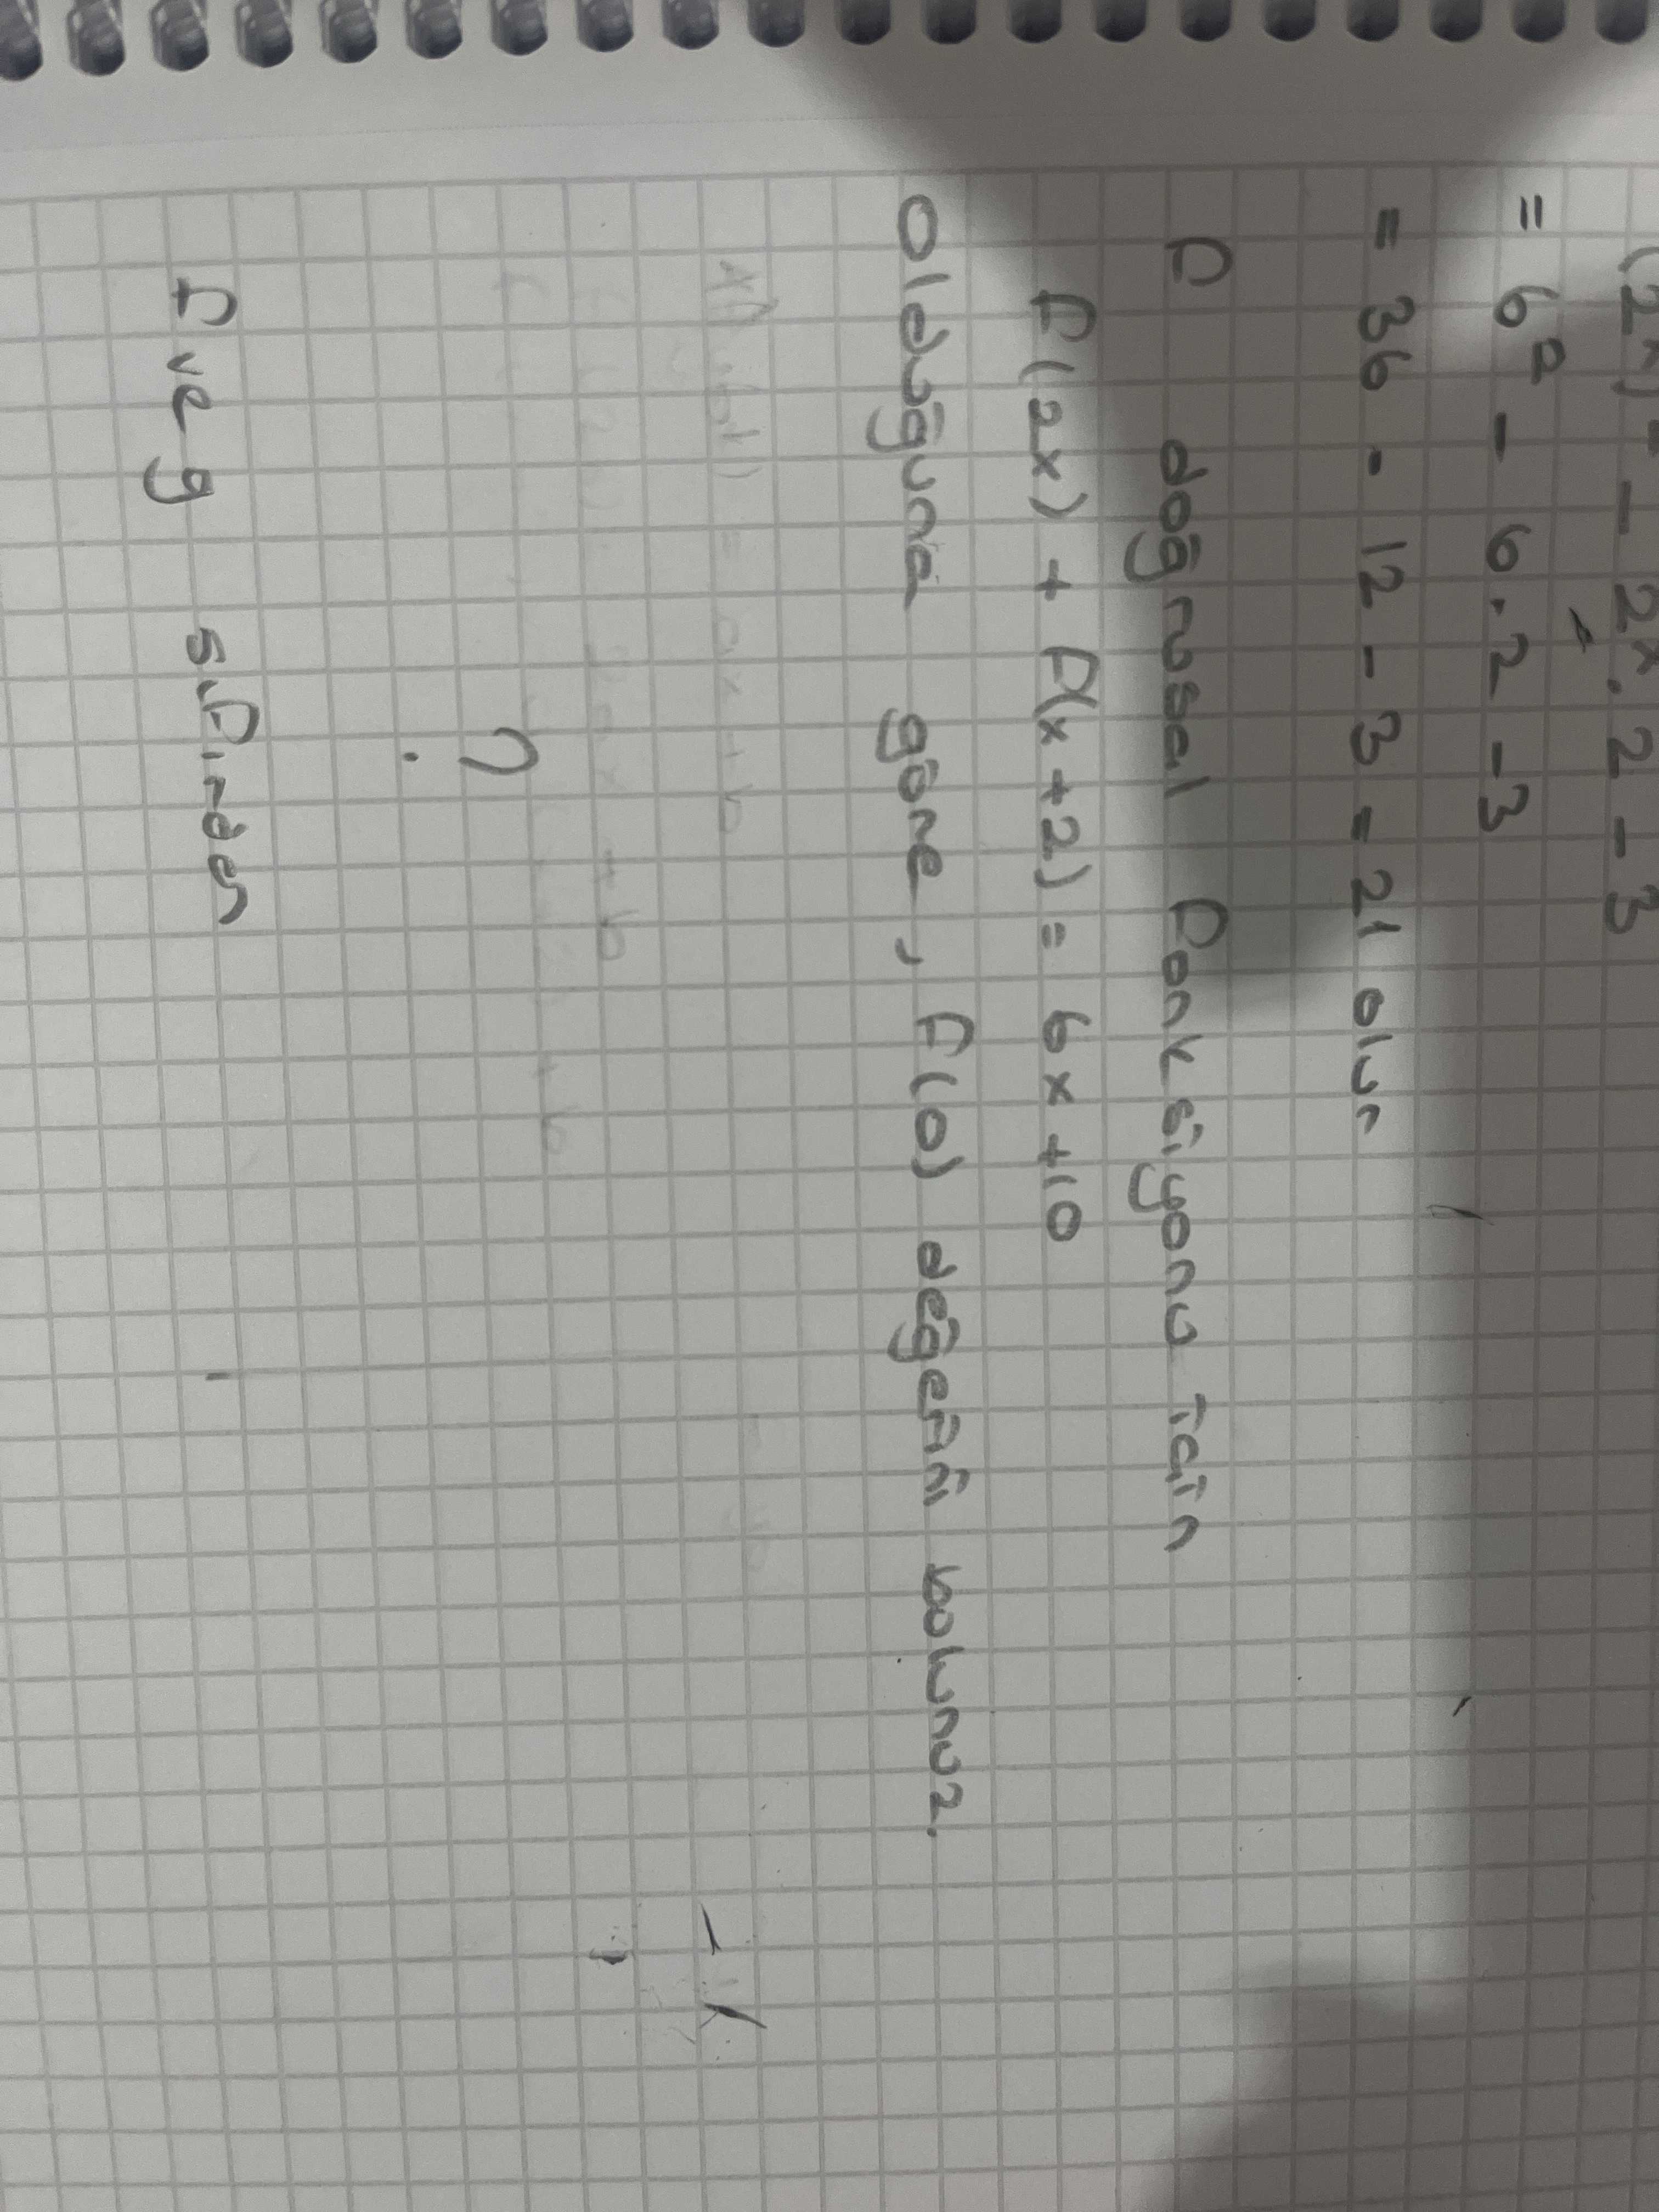 (2x)² - 2x.2 - 3
= 6² - 6.2 - 3
= 36 - 12 - 3 = 21 olur
f doğrusal fonksiyonu için
f(2x) + f(x+2) = 6x+10
olduğuna göre, f(0) değerini bulunuz.
?
f ve g sıfırdan